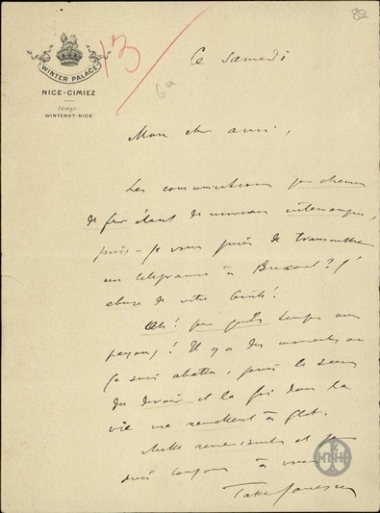 82
13
6a
WINTER PALACE
NICE-CIMIEZ
Télégr.
WINTEROT-NICE
Ce samedi
Mon cher ami,
Les communications par chemin
de fer étant de nouveau interrompues,
puis-je vous prier de transmettre
un télégramme à Bucarest? J'
abuse de votre bonté!
Oh! quel temps nous
payons! Il y a des moments où
je suis abattu, puis le sens
du devoir et la foi dans la
vie me remettent à flot.
Mille remerciements et je
suis toujours à vous
Take Jonescu